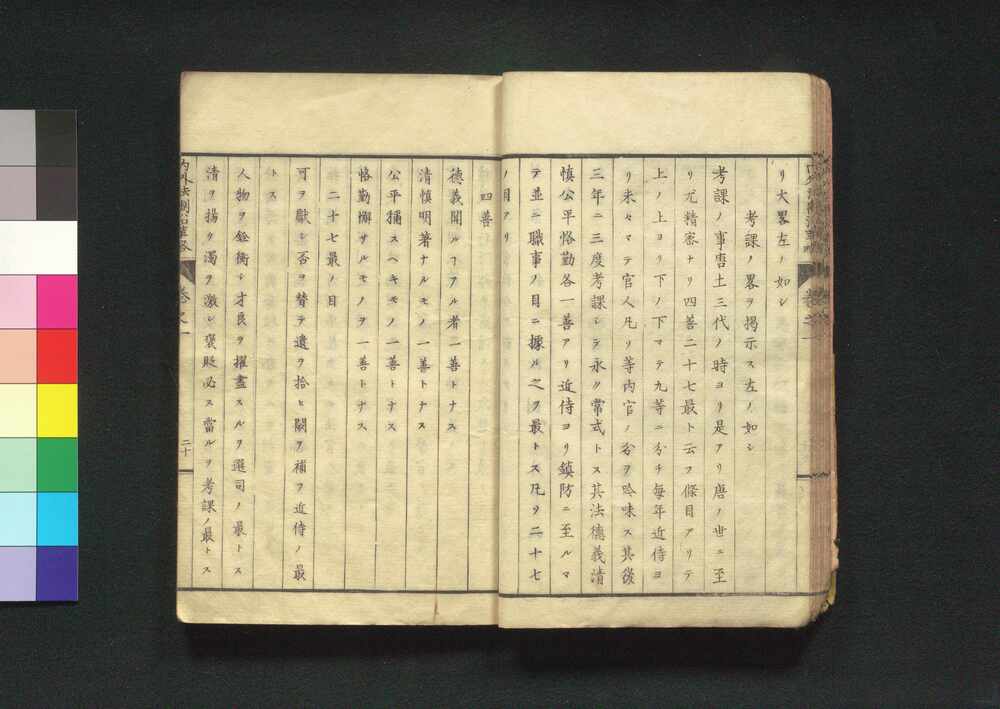 リ大畧左ノ如シ
考課ノ畧ヲ掲示ス左ノ如シ
考課ノ事唐土三代ノ時ヨリ是アリ唐ノ世ニ至
リ尤精密ナリ四善二十七最ト云フ條目アリテ
上ノ上ヨリ下ノ下マテ九等ニ分チ毎年近侍ヨ
リ末々マテ官人凡リ等内官ノ分ヲ吟味ス其後
三年ニ三度考課シテ永ク常式トス其法德義淸
慎公平恪勤各一善アリ近侍ヨリ鎮防ニ至ルマ
テ並ニ職事ノ目ニ據ル之ヲ最トス凡ソ二十七
ノ目アリ
四善
德義聞ルヿアル者一善トナス
淸愼明著ナルモノ一善トナス
公平稱スヘキモノ一善トナス
恪勤懈サルモノヲ一善トナス
二十七最ノ目
可ヲ獻シ否ヲ替テ遺ヲ拾ヒ闕ヲ補フ近侍ノ最
トス
人物ヲ銓衡シ才良ヲ擢盡スルヲ選司ノ最トス
淸ヲ揚ケ濁ヲ激シ褒貶必ス當ルヲ考課ノ最トス
内外法制沿革畧
卷之一
二十